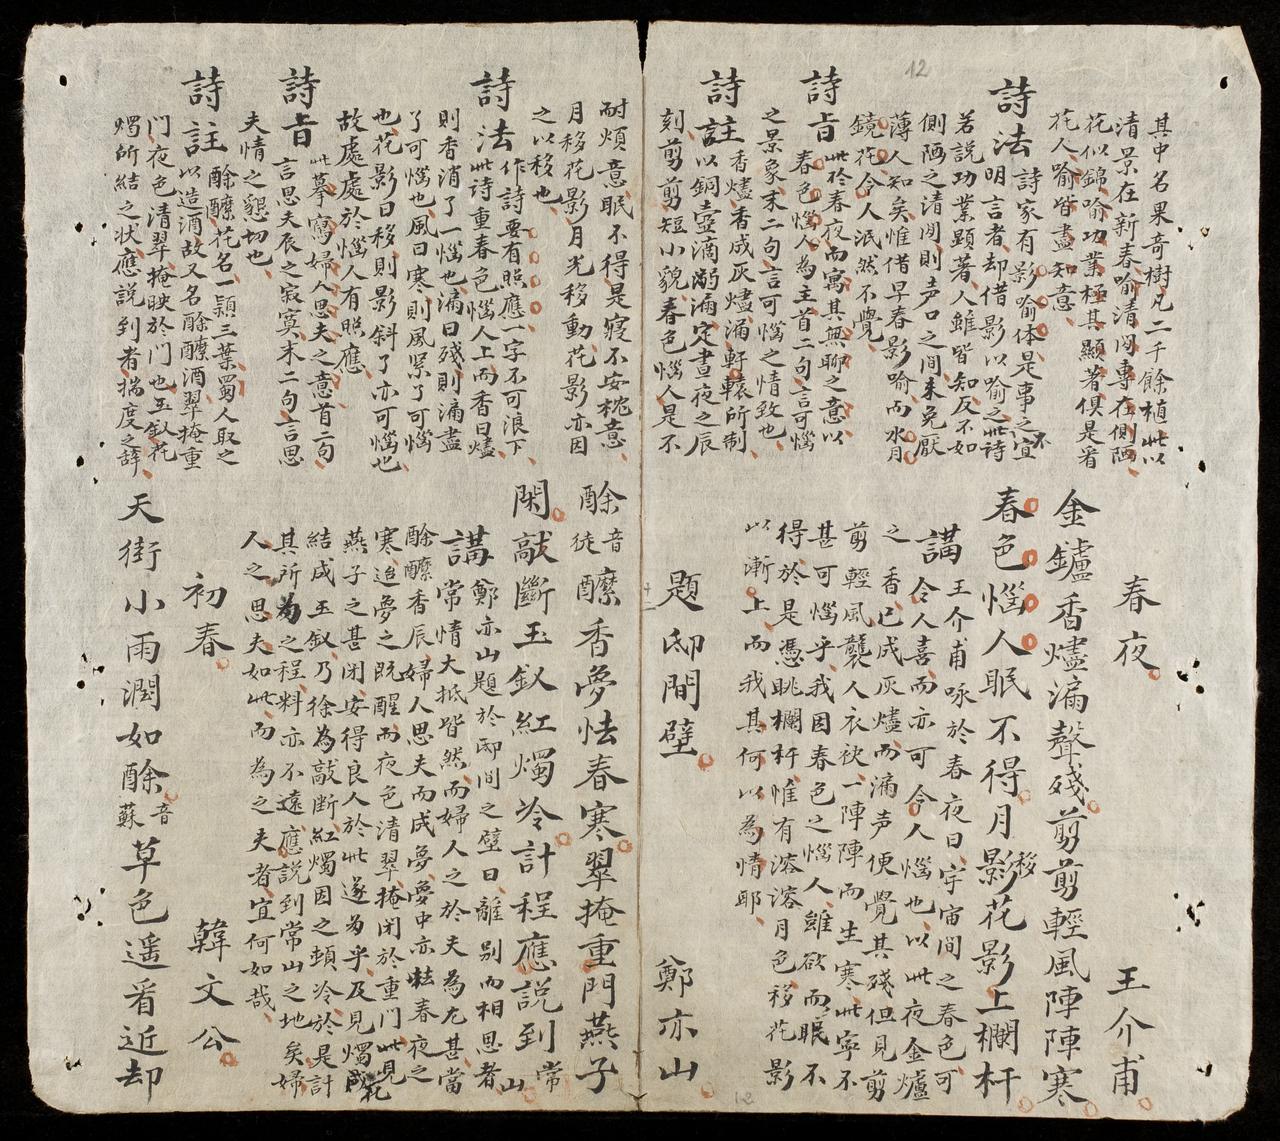 12
其中名果奇樹凡二千餘植此以
清景在新春喻清閑專在側陋
花似錦喻功業極其顯著俱是看
花人喻皆盡知意
詩法詩家有影喻体是事之不宜
明言者却借影以喻之此詩
若說功業顯著人雖皆知反不如
側陋之清閑則声口之間未免厭
薄人知矣惟借早春影喻而水月
鏡花令人泯然不覺
詩旨此於春夜而寓其無聊之意以
春色惱人為主首二句言可惱
之景象末二句言可惱之情致也
詩註香燼香成灰燼漏軒轅所制
以銅壺滴漏定晝夜之辰
刻剪剪短小貌春色惱人是不
春夜 王介甫
金鑪香燼漏聲殘剪剪輕風陣陣寒
春色惱人眠不得月移影花影上欄杆
講王介甫咏於春夜曰宇宙間之春色可
令人喜而亦可令人惱也以此夜金爐
之香已成灰燼而漏声便覺其殘但見剪
剪輕風襲人衣袂一陣陣而生寒此寧不
甚可惱乎我因春色之惱人雖欲而眠不
得於是憑眺欄杆惟有溶溶月色移花影
以漸上而我其何以為情耶
題邸間壁 鄭亦山
耐煩意眠不得是寢不安枕意
月移花影月光移動花影亦因
之以移也
詩法作詩要有照應一字不可浪下
此詩重春色惱人上而香曰燼
則香消了一惱也漏曰殘則漏盡
了可惱也風曰寒則風緊了可惱
也花影曰移則影斜了亦可惱也
故處處於惱人有照應
詩旨此摹寫婦人思夫之意首二句
言思夫辰之寂寞末二句言思
夫情之懇切也
詩註酴醾花名一頴三葉蜀人取之
以造酒故又名酴醾酒翠掩重
門夜色清翠掩映於門也玉釵花
燭所結之狀應說到者揣度之辞
酴音徒醾香夢怯春寒翠掩重門燕子
閑敲斷玉釵紅燭冷計程應說到常山
講鄭亦山題於邸間之壁曰離別而相思者
常情大抵皆然而婦人之於夫為尤甚當
酴醾香辰婦人思夫而成夢夢中亦怯春夜之
寒迨夢之既醒而夜色清翠掩閉於重門此見
燕子之甚閑安得良人於此遂為乎及見燭花
結成玉釵乃徐為敲断紅燭因之頓冷於是計
其所為之程料亦不遠應説到常山之地矣婦
人之思夫如此而為之夫者宜何如哉
初春 韓文公
天街小雨潤如酥音蘇草色遥看近却
12